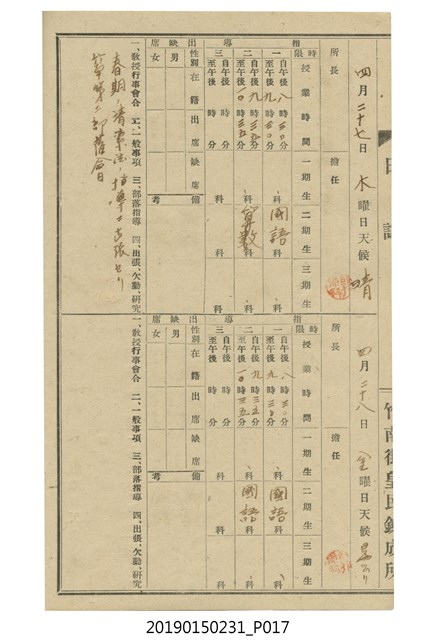 日誌
竹南街皇民鍊成所
四月二十七日 木曜日 天候 晴
所長
擔任
時限 授業時間 一期生 二期生 三期生
指導
一 自午後八時三〇分 至午後九時三〇分 科 國語科 科
二 自午後九時三五分 至午後一〇時三五分 科 算數科 科
三 自午後 時 分 至午後 時 分 科 科 科
出缺席
性別 在籍 出席 缺席 備考
男
女
一、教授行事會合 二、一般事項 三、部落指導 四、出張、欠勤、研究
四月二十八日 金曜日 天候
所長
擔任
時限 授業時間 一期生 二期生 三期生
指導
一 自午後八時三〇分 至午後九時三〇分 科 國語科 科
二 自午後九時三五分 至午後一〇時三五分 科 國語科 科
三 自午後 時 分 至午後 時 分 科 科 科
出缺席
性別 在籍 出席 缺席 備考
男
女
一、教授行事會合 二、一般事項 三、部落指導 四、出張、欠勤、研究
20190150231_P017